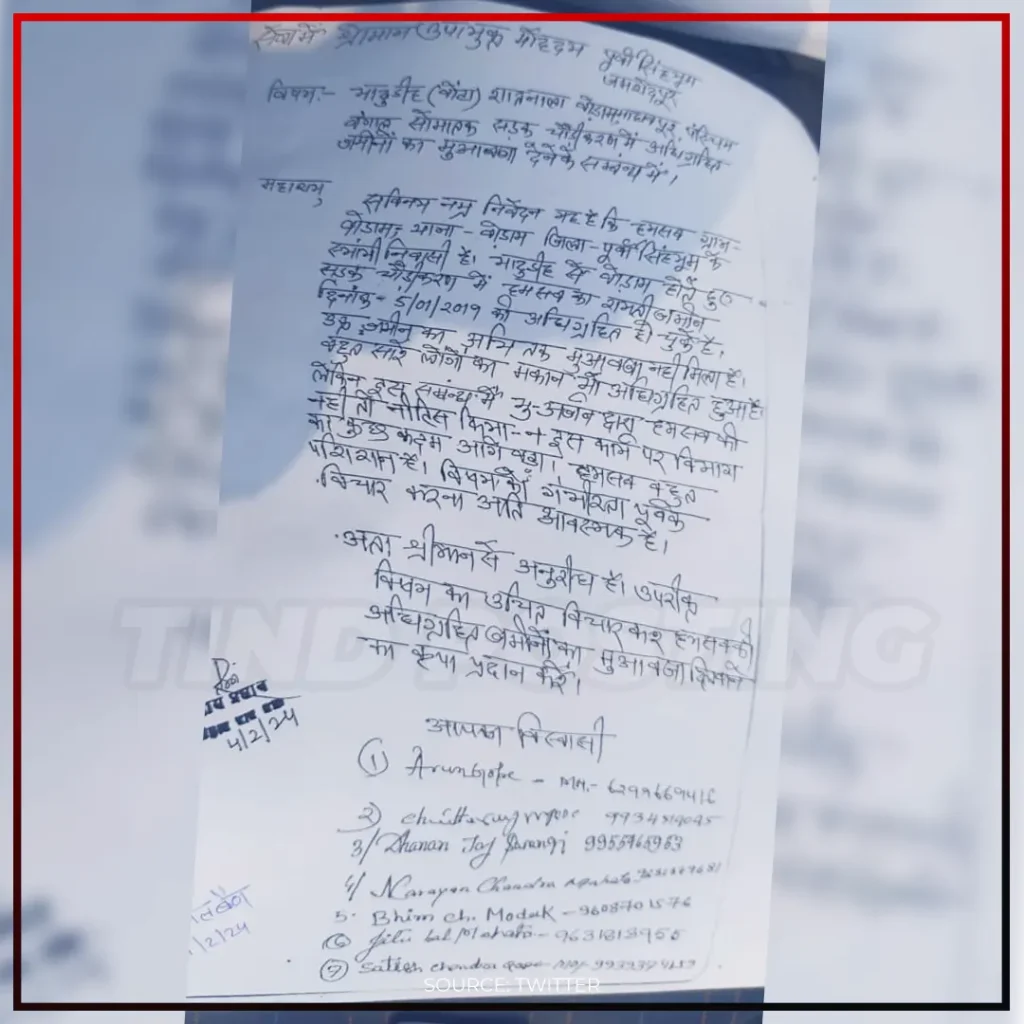 सेवा में श्रीमान उपायुक्त महोदय पूर्वी सिंहभूम
जमशेदपुर
विषय:- भादुडीह (बोटा) शाहनाला बोड़ाम माधवपुर, पश्चिम
बंगाल सीमातक सड़क चौड़ीकरण में अधिग्रहित
जमीनों का मुआवजा देने के सम्बंध में।
महाशय
सविनय नम्र निवेदन यह है कि हमसब ग्राम-
बोड़ाम, थाना - बोड़ाम जिला - पूर्वी सिंहभूम के
स्थायी निवासी है। भादुडीह से बोड़ाम होते हुए
सड़क चौड़ीकरण में हमसब का रायती जमीन
दिनांक - 5/01/2019 को अधिग्रहित हो चुके है,
उक्त जमीन का अभि तक मुआवजा नहीं मिला है।
बहुत सारे लोगों का मकान भी अधिग्रहित हुआ है
लेकिन इस सम्बंध में भु-अर्जन द्वारा हमसब को
नहीं तो नोतिस किया - न इस कार्य पर विभाग
का कुछ कदम आगे बढ़ा। हमसब बहुत
परेशान है। विषय को गंभीरता पूर्वक
विचार करना अति आवश्यक है।
अतः श्रीमान से अनुरोध है। उपरोक्त
विषय का उचित विचार कर हमसबको
अधिग्रहित जमीनों का मुआवजा दिलाने
का कृपा प्रदान करें।
आपका विश्वासी
① Arun Gope - MM.- 6299669416
2)
3/ Dhanan Jay Sarangi 9955965953
4/ Narayan Chandra Mahato
5. Bhim ch. Modak - 9608701576
⑥ Jitu Lal Mahato - 9631813955
⑦ Satish chandra Gope
4/2/24
/2/24
TIND POSTING
SOURCE: TWITTER